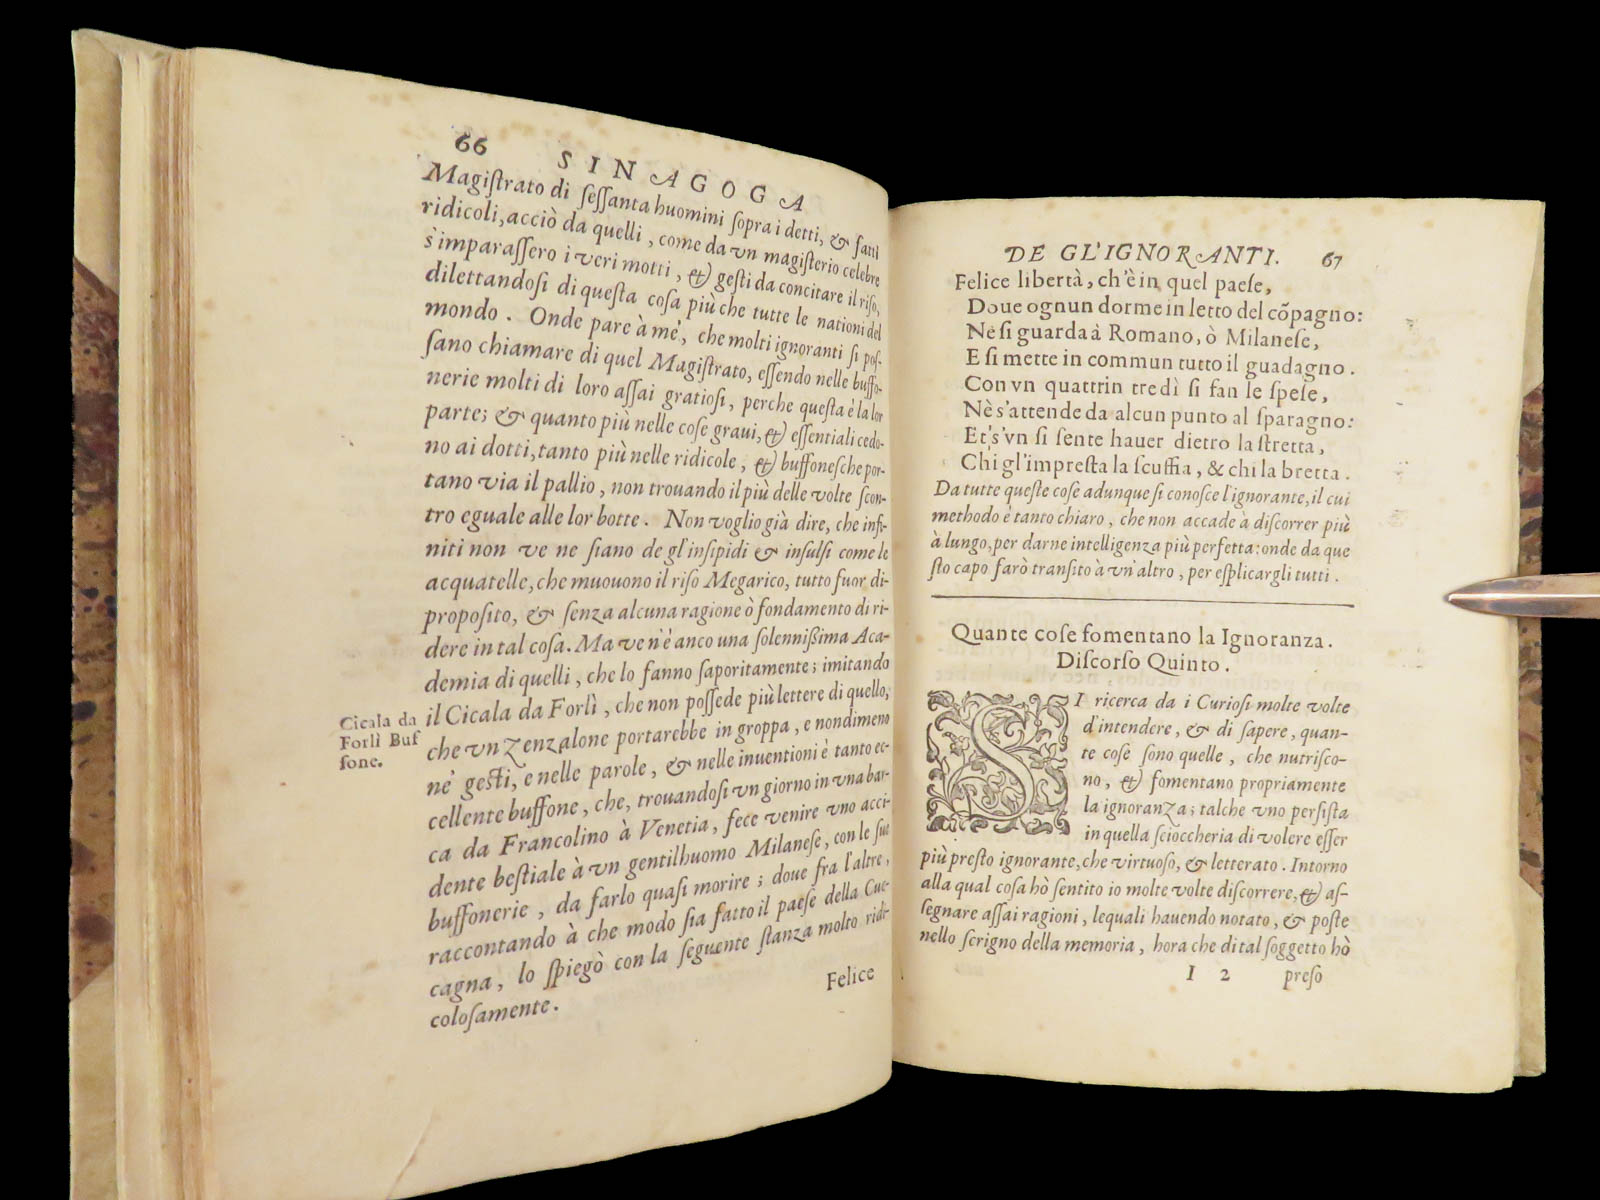 66 SINAGOGA
Magiſtrato di ſeſſanta huomini ſopra i detti, & fatti
ridicoli, acciò da quelli, come da vn magiſterio celebre
s'imparaſſero i veri motti, & geſti da concitare il riſo,
dilettandoſi di queſta coſa più che tutte le nationi del
mondo. Onde pare à mè, che molti ignoranti ſi poſ-
ſano chiamare di quel Magiſtrato, eſſendo nelle buffo-
nerie molti di loro aſſai gratioſi, perche queſta è la lor
parte; & quanto più nelle coſe graui, & eſſentiali cedo-
no ai dotti, tanto più nelle ridicole, & buffoneſche por-
tano via il pallio, non trouando il più delle volte ſcon-
tro eguale alle lor botte. Non voglio già dire, che infi-
niti non ve ne ſiano de gl'inſipidi & inſulſi come le
acquatelle, che muouono il riſo Megarico, tutto fuor di-
propoſito, & ſenza alcuna ragione ò fondamento di ri-
dere in tal coſa. Ma ve n'è anco una ſolenniſſima Aca-
demia di quelli, che lo fanno ſaporitamente; imitando
il Cicala da Forlì, che non poſſede più lettere di quello,
che vn Zenzalone portarebbe in groppa, e nondimeno
nè geſti, e nelle parole, & nelle inuentioni è tanto ec-
cellente buffone, che, trouandoſi vn giorno in vna bar-
ca da Francolino à Venetia, fece venire vno acci-
dente beſtiale à vn gentilhuomo Milaneſe, con le ſue
buffonerie, da farlo quaſi morire; doue fra l'altre,
raccontando à che modo ſia fatto il paeſe della Cuc-
cagna, lo ſpiegò con la ſeguente ſtanza molto ridi-
coloſamente.
Felice
Cicala da
Forlì Buf
fone.
DE GL'IGNORANTI. 67
Felice libertà, ch'è in quel paeſe,
Doue ognun dorme in letto del cõpagno:
Nè ſi guarda à Romano, ò Milaneſe,
E ſi mette in commun tutto il guadagno.
Con vn quattrin tre dì ſi fan le ſpeſe,
Nè s'attende da alcun punto al ſparagno:
Et s'vn ſi ſente hauer dietro la ſtretta,
Chi gl'impreſta la ſcuffia, & chi la bretta.
Da tutte queſte coſe adunque ſi conoſce l'ignorante, il cui
methodo è tanto chiaro, che non accade à diſcorrer più
à lungo, per darne intelligenza più perfetta: onde da que
ſto capo farò tranſito à vn'altro, per eſplicargli tutti.
Quante coſe fomentano la Ignoranza.
Diſcorſo Quinto.
SI ricerca da i Curioſi molte volte
d'intendere, & di ſapere, quan-
te coſe ſono quelle, che nutriſco-
no, & fomentano propriamente
la ignoranza; talche vno perſiſta
in quella ſcioccheria di volere eſſer
più preſto ignorante, che virtuoſo, & letterato. Intorno
alla qual coſa hò ſentito io molte volte diſcorrere, & aſ-
ſegnare aſſai ragioni, lequali hauendo notato, & poſte
nello ſcrigno della memoria, hora che di tal ſoggetto hò
I 2 preſo